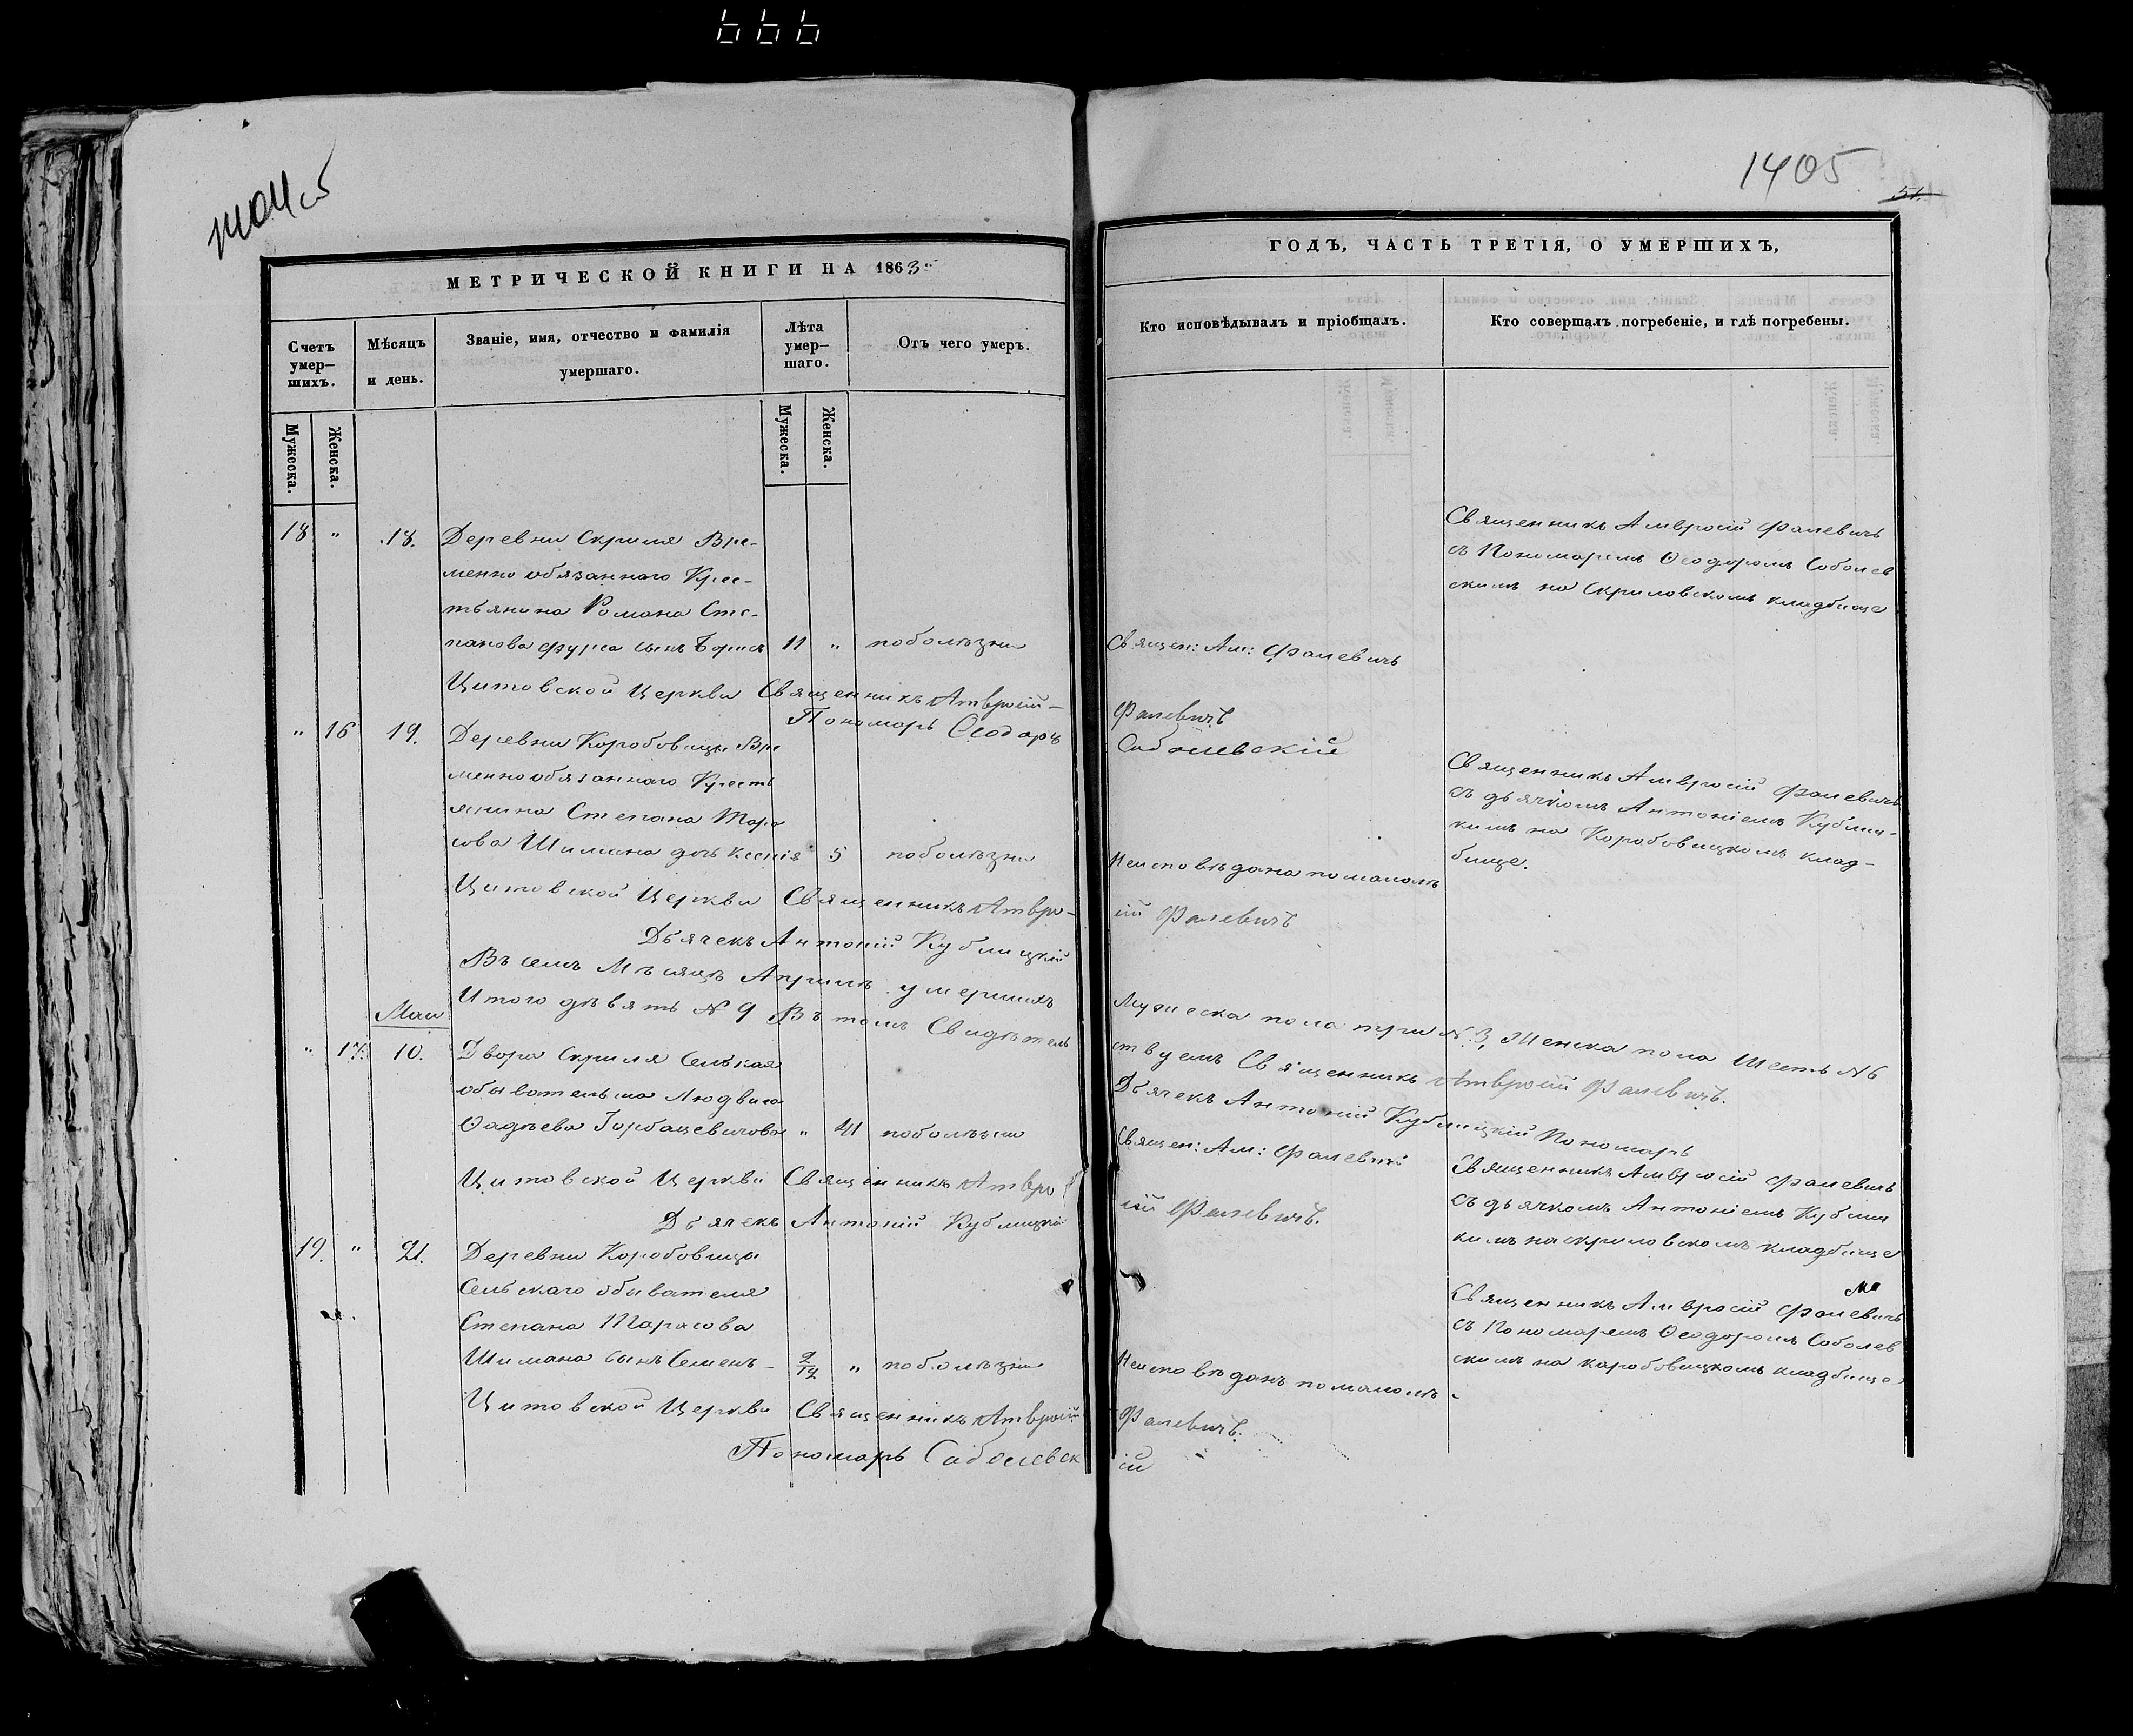 666
1405
51.
МЕТРИЧЕСКОЙ КНИГИ НА 1863
ГОДЪ, ЧАСТЬ ТРЕТІЯ, О УМЕРШИХЪ,
Счетъ умер-
шихъ.
Мѣсяцъ
и день.
Званіе, имя, отчество и фамилія
умершаго.
Лѣта
умер-
шаго.
Отъ чего умеръ.
Кто исповѣдывалъ и пріобщалъ.
Кто совершалъ погребеніе, и гдѣ погребены.
Мужеска.
Женска.
Мужеска.
Женска.
18 " 18. Деревни Скриля Вре-
менно обязаннаго Крес-
тьянина Романа Сте-
панова Фурса сынъ Борисъ 11 " поболѣзни
Священ: Ам: Фалевичъ
Священникъ Амвросій Фалевичъ
съ Пономаремъ Ѳеодоромъ Соболев
скимъ на Скриловскомъ кладбище
Цитовской Церкви Священникъ Амвросій-
Фалевичъ
Пономарь Ѳеодоръ
Соболевскій
" 16 19. Деревни Коробовицы Вре
менно обязаннаго Кресть
янина Степана Тара
сова Шимана дочь Ксенія 5 поболѣзни
Неисповѣдана помалолѣ
Священникъ Амвросій Фалевичъ
съ дьячкомъ Антоніемъ Кублиц-
кимъ на Коробовицкомъ клад-
бище.
Цитовской Церкви Священникъ Амвро-
сій Фалевичъ
Дьячекъ Антоній Кублицкій
Въ семъ Мѣсяцѣ Априлѣ умершихъ
Мужеска пола три N 3, Женска пола Шесть N 6
Итого девять N 9 Въ томъ Свидѣтель
ствуемъ Священникъ Амвросій Фалевичъ.
Дьячекъ Антоній Кублицкій Пономарь
Маи
" 17. 10. Двора Скриля Селькая
обывательша Людвига
Ѳадѣева Горбацевичова " 41 поболѣзни
Священ: Ам: Фалевичъ
Священникъ Амвросій Фалевичъ
съ дьячкомъ Антоніемъ Кублиц
кимъ на скриловскомъ кладбище
Цитовской Церкви Священникъ Амвро
сій Фалевичъ.
Дьячекъ Антоній Кублицкій
19. " 21. Деревни Коробовицы
Сельскаго обывателя
Степана Тарасова
Шимана сынъ Семенъ- 2/12 " поболѣзни
Неисповѣданъ помалолѣ-
Священникъ Амвросій Фалевичъ
съ Пономаремъ Ѳеодоромъ Соболев
скимъ на каробовицкомъ кладбище
Цитовской Церкви Священникъ Амвросій
Фалевичъ.
Пономарь Соболевск
ій